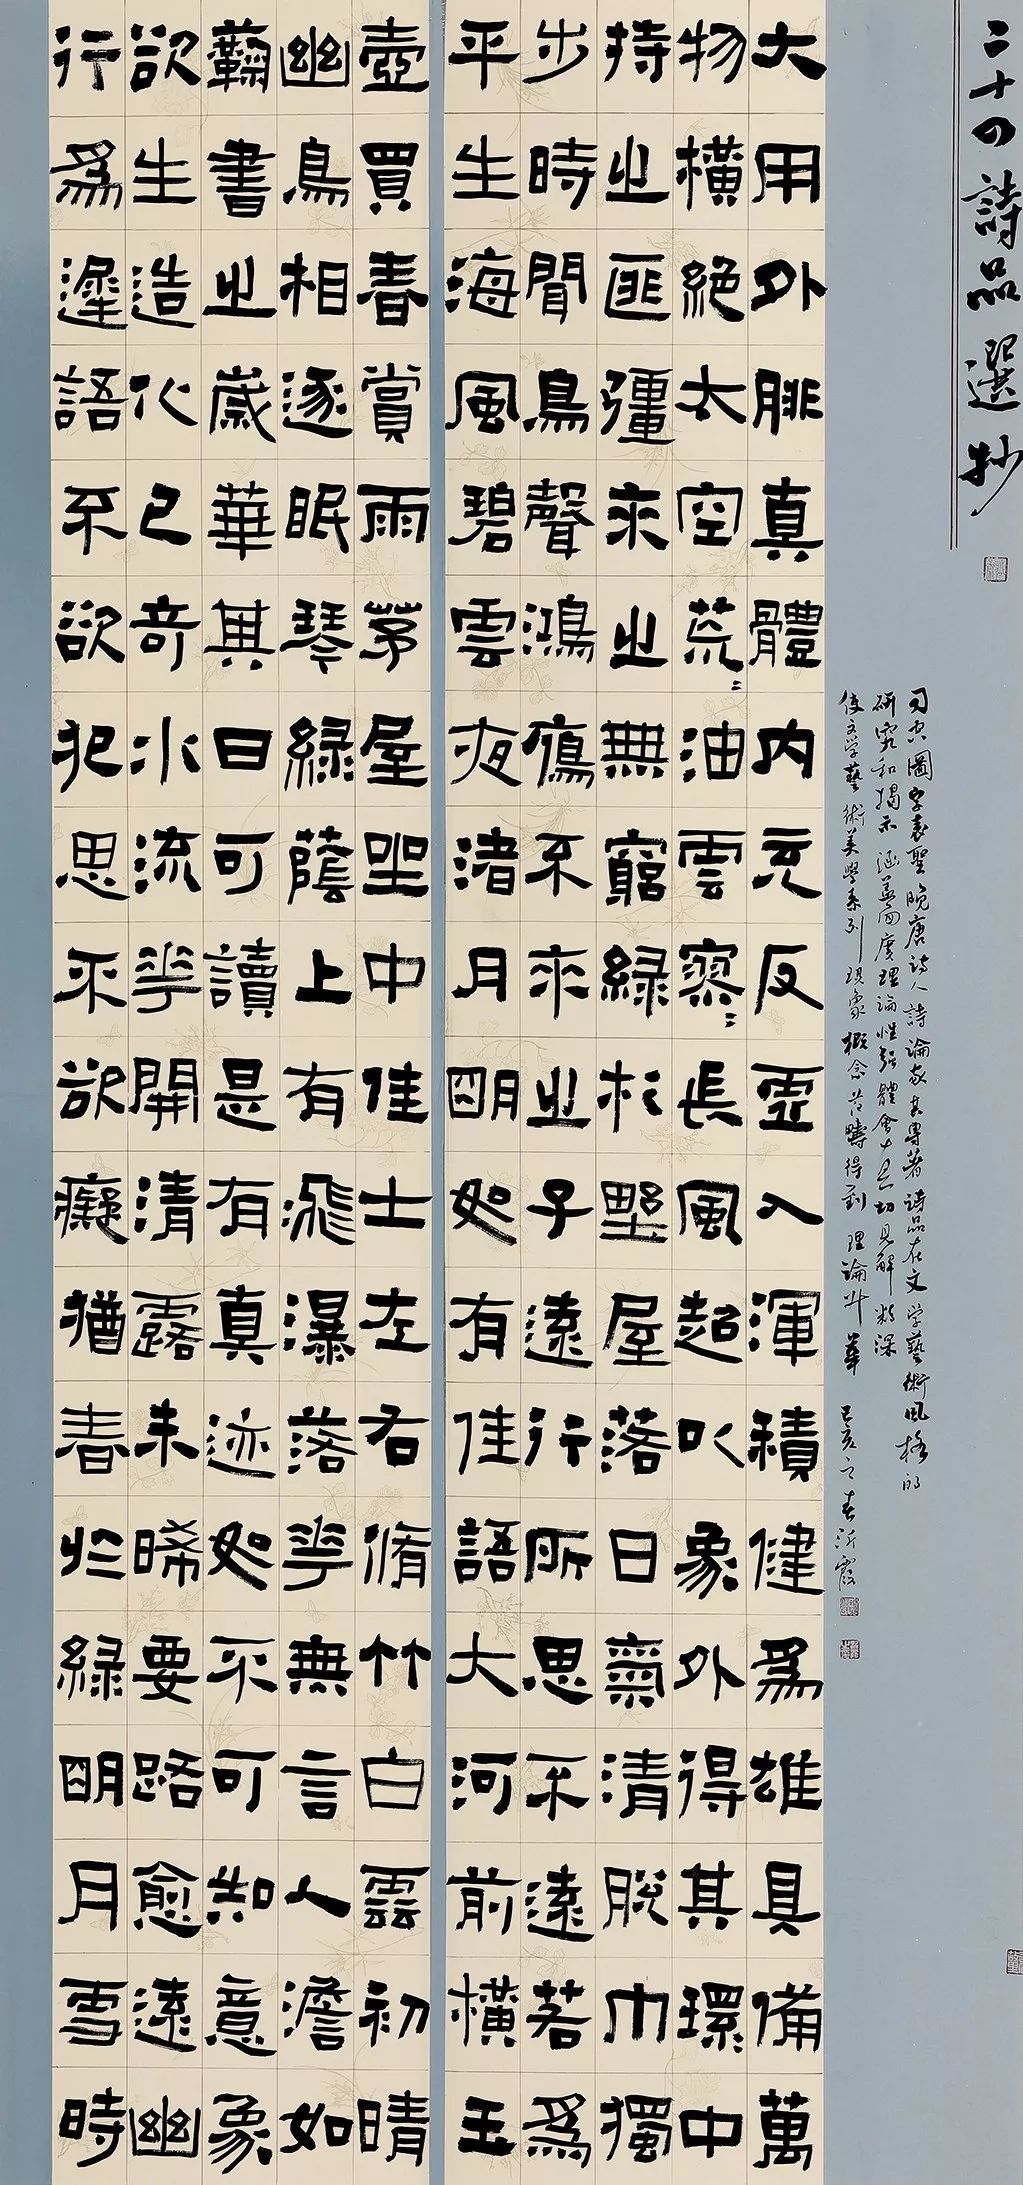 二十四詩品選抄
司空圖字表聖晚唐詩人詩論家其專著詩品在文学藝術風格的
研究和揭示涵蓋面廣理論性強體會十足切見解精深
使文学藝術美學系列現象概念范疇得到理論升華 己亥之春沂霞
大用外腓真體內充反虛入渾積健爲雄具備萬
物橫絕太空荒〻油雲寥〻長風超以象外得其環中
持之匪彊來之無窮綠杉壄屋落日氣清脫巾獨
步時聞鳥聲鴻鴈不來之子遠行所思不遠若爲
平生海風碧雲夜渚月明如有佳語大河前橫玉
壺買春賞雨茅屋坐中佳士左右脩竹白雲初晴
幽鳥相逐眠琴綠蔭上有飛瀑落花無言人澹如
蘜書之歲華其曰可讀是有真迹如不可知意象
欲生造化已奇水流花開清露未晞要路愈遠幽
行爲遲語不欲犯思不欲癡猶春於綠明月雪時